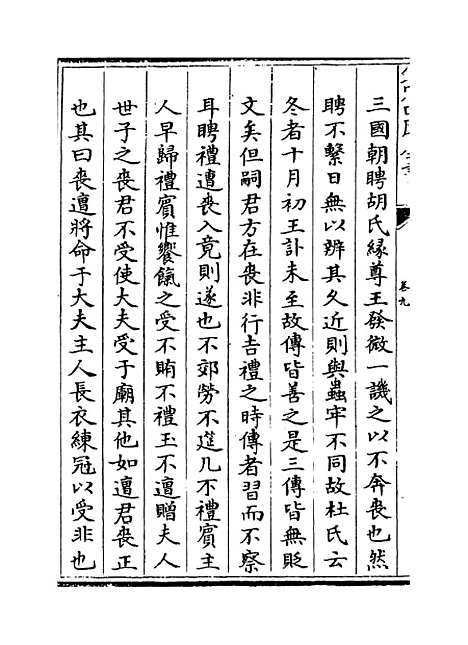 三國朝聘胡氏縁尊王發微一譏之以不奔喪也然
聘不繫日無以辨其久近則與蟲牢不同故杜氏云
冬者十月初王訃未至故傳皆善之是三傳皆無貶
文矣但嗣君方在喪非行吉禮之時傳者習而不察
耳聘禮遭喪入竟則遂也不郊勞不筵几不禮賓主
人畢歸禮賓惟饗餼之受不賄不禮玉不遣贈夫人
世子之喪君不受使大夫受于廟其他如遭君喪正
也其曰喪遭將命于大夫主人長衣練冠以受非也
卷九